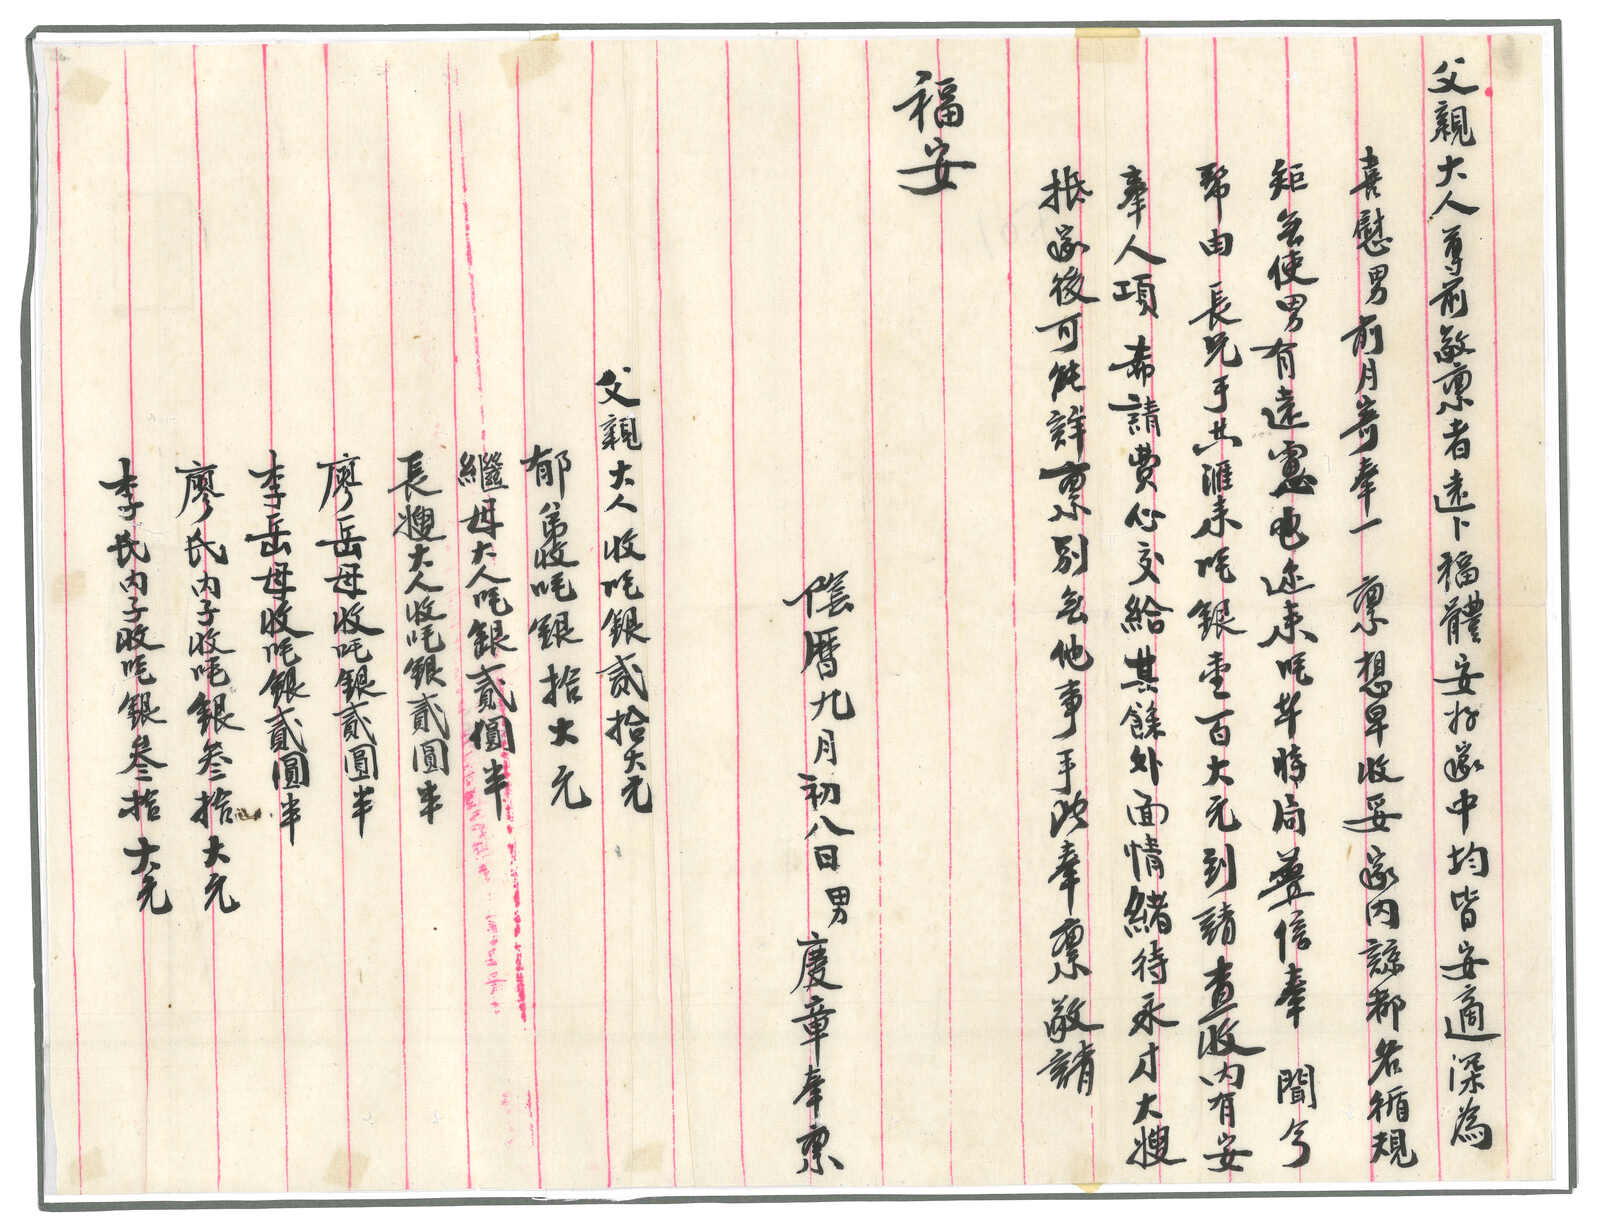 父親大人尊前敬稟者遠卜福體安好家中均皆安適深為
喜慰男前月寄奉一 稟想早收妥家内諒都各循規
矩無使男有遠慮也近來呢羊時局無信奉 聞今
幣由 長兄手共滙來呢銀壹百大元到請查收内有安
奉人項 希請費心交給其餘外面情緒待永才大嫂
抵家後可能詳稟別無他事手此奉稟敬請
福安
陰曆九月初八日男 慶章奉稟
父親大人收呢銀貳拾大元
郁弟收呢銀拾大元
繼母大人呢銀貳價半
長嫂大人收呢銀貳圓半
廖岳母收呢銀貳圓半
李岳母收呢銀貳圓半
廖氏内子收呢銀叁拾大元
李氏内子收呢銀叁拾大元